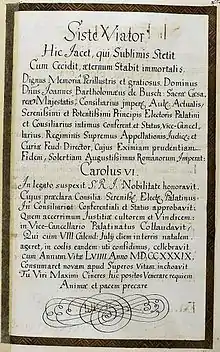 Siste Viator
Hic Jacet, qui Sublimis Stetit
Cum Cecidit, æternum Stabit immortalis.
Dignus Memoria Perillustris et gratiosus Dominus
Dnus Joannes Bartholomæus de Busch: Sacræ Cæsa-
reæ Majestatis Consiliarius imper: Aulæ Actualis:
Serenissimi et Potentissimi Principis Electoris Palatini
et Consiliarius intimus Conferent: et Status, Vice-Cancel-
larius, Regiminis Supremus Appellationis Judex, et
Curiæ Feud: Director, Cujus Eximiam prudentiam
Fidem, Solertiam Augustissimus Romanorum Imperat:
Carolus VI.
In legato suspexit S. R. I. Nobilitate honoravit.
Cujus præclara Consilia Sereniss: Elect: Palatinus.
In Consiliariat: Conferentiali et Status approbavit:
Quem accerrimum Justitiæ cultorem et Vindicem:
in Vice-Cancellario Palatinatus Collaudavit:
Qui cum VIII Calend: July diem interris natalem
ageret, in coelis eandem uti confidimus, cellebravit
cum Annum Vitæ LVIIII Anno MDCCXXXIX.
Consumaret novam apud Superos Vitam inchoavit
Tu Viri Maximi Cineres huic positos Venerare requiem
Animæ et pacem precare